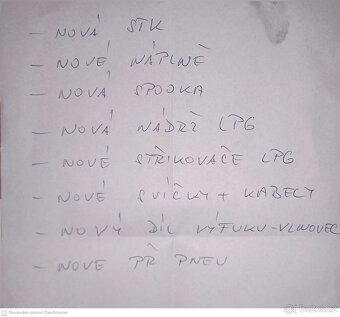 - NOVÁ STK
- NOVÉ NÁPLNĚ
- NOVÁ SPOJKA
- NOVÁ NÁDRŽ LPG
- NOVÉ STŘIKOVAČE LPG
- NOVÉ SVÍČKY + KABELY
- NOVÝ DÍL VÝFUKU-VLNOVEC
- NOVE PŘ PNEU